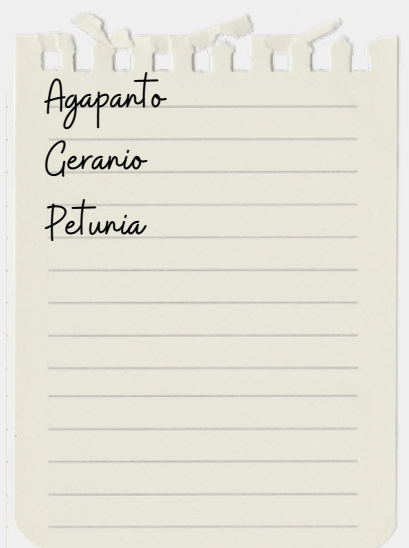 Agapanto
Geranio
Petunia